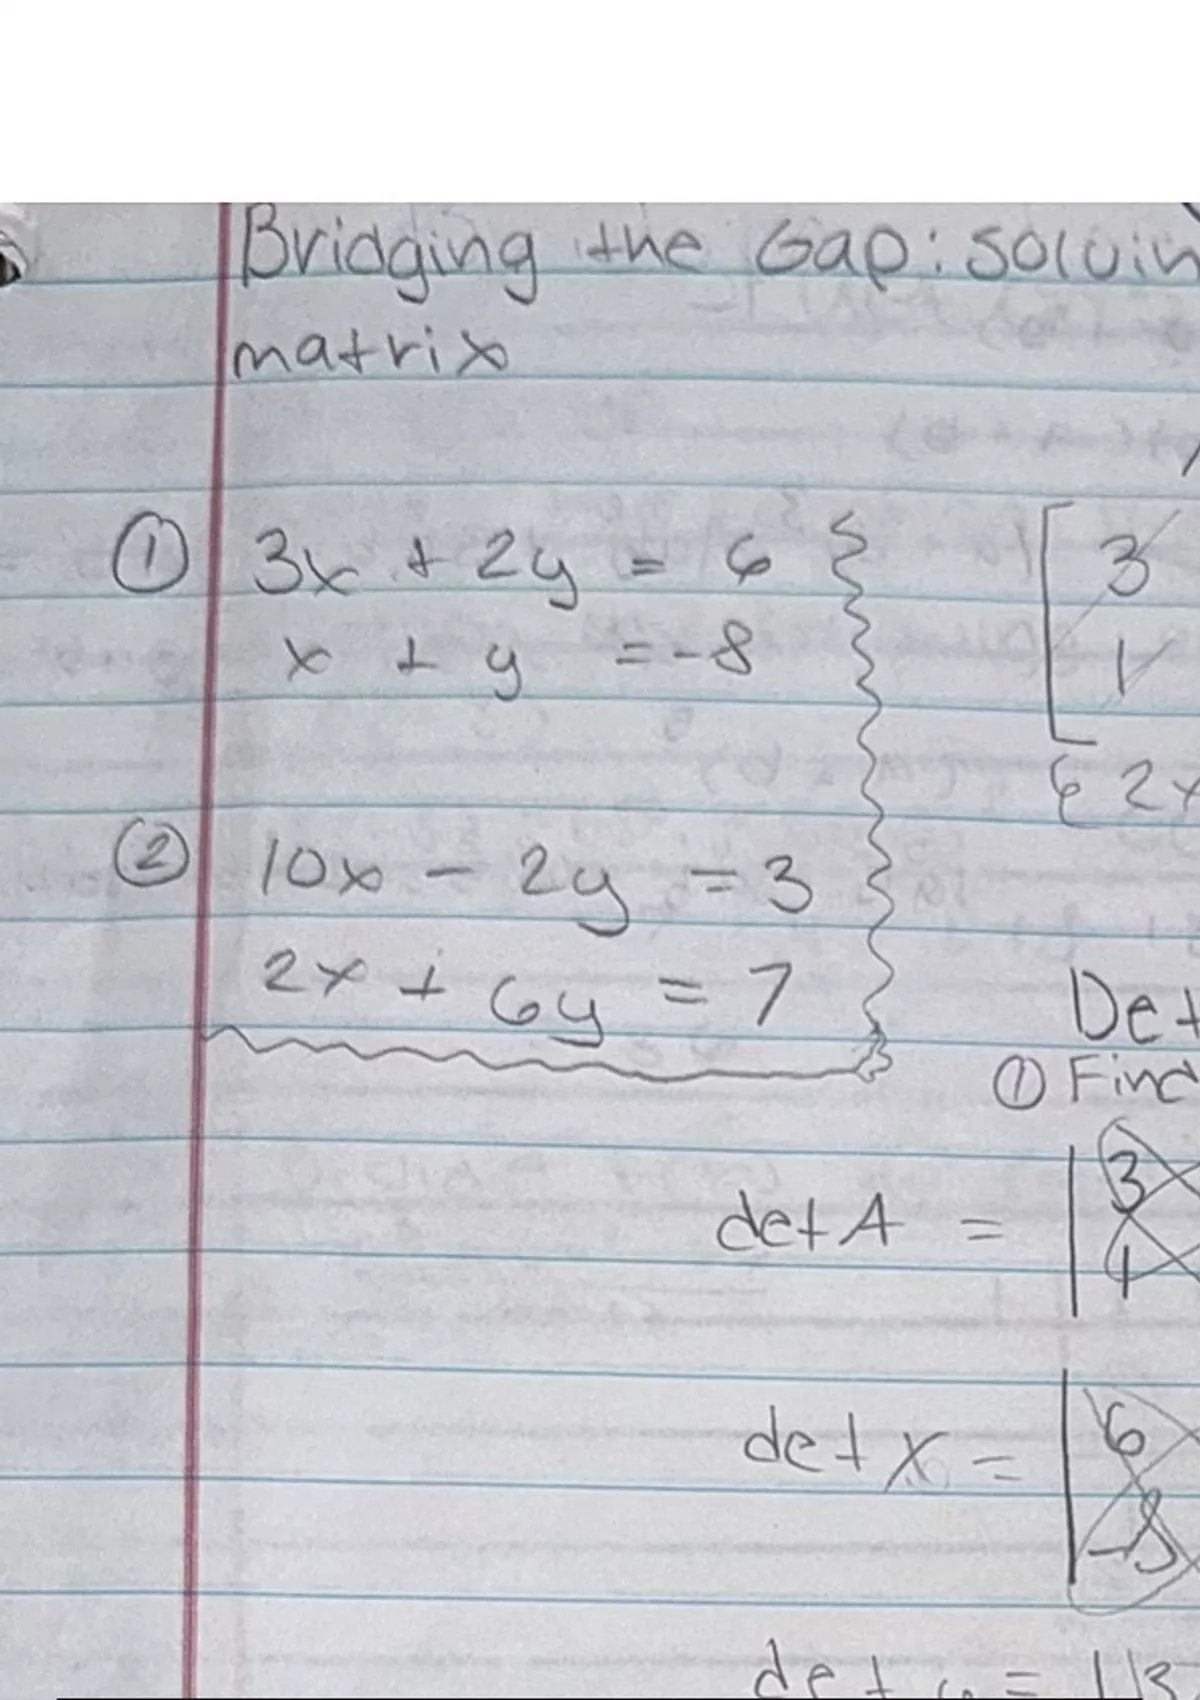 Bridging the Gap: solvin
matrix
① 3x + 2y = 6
x + y = -8
② 10x - 2y = 3
2x + 6y = 7
[3
1
{ 2x
Det
① Find
det A = |3
1
det x = |6
-8
det y = |3